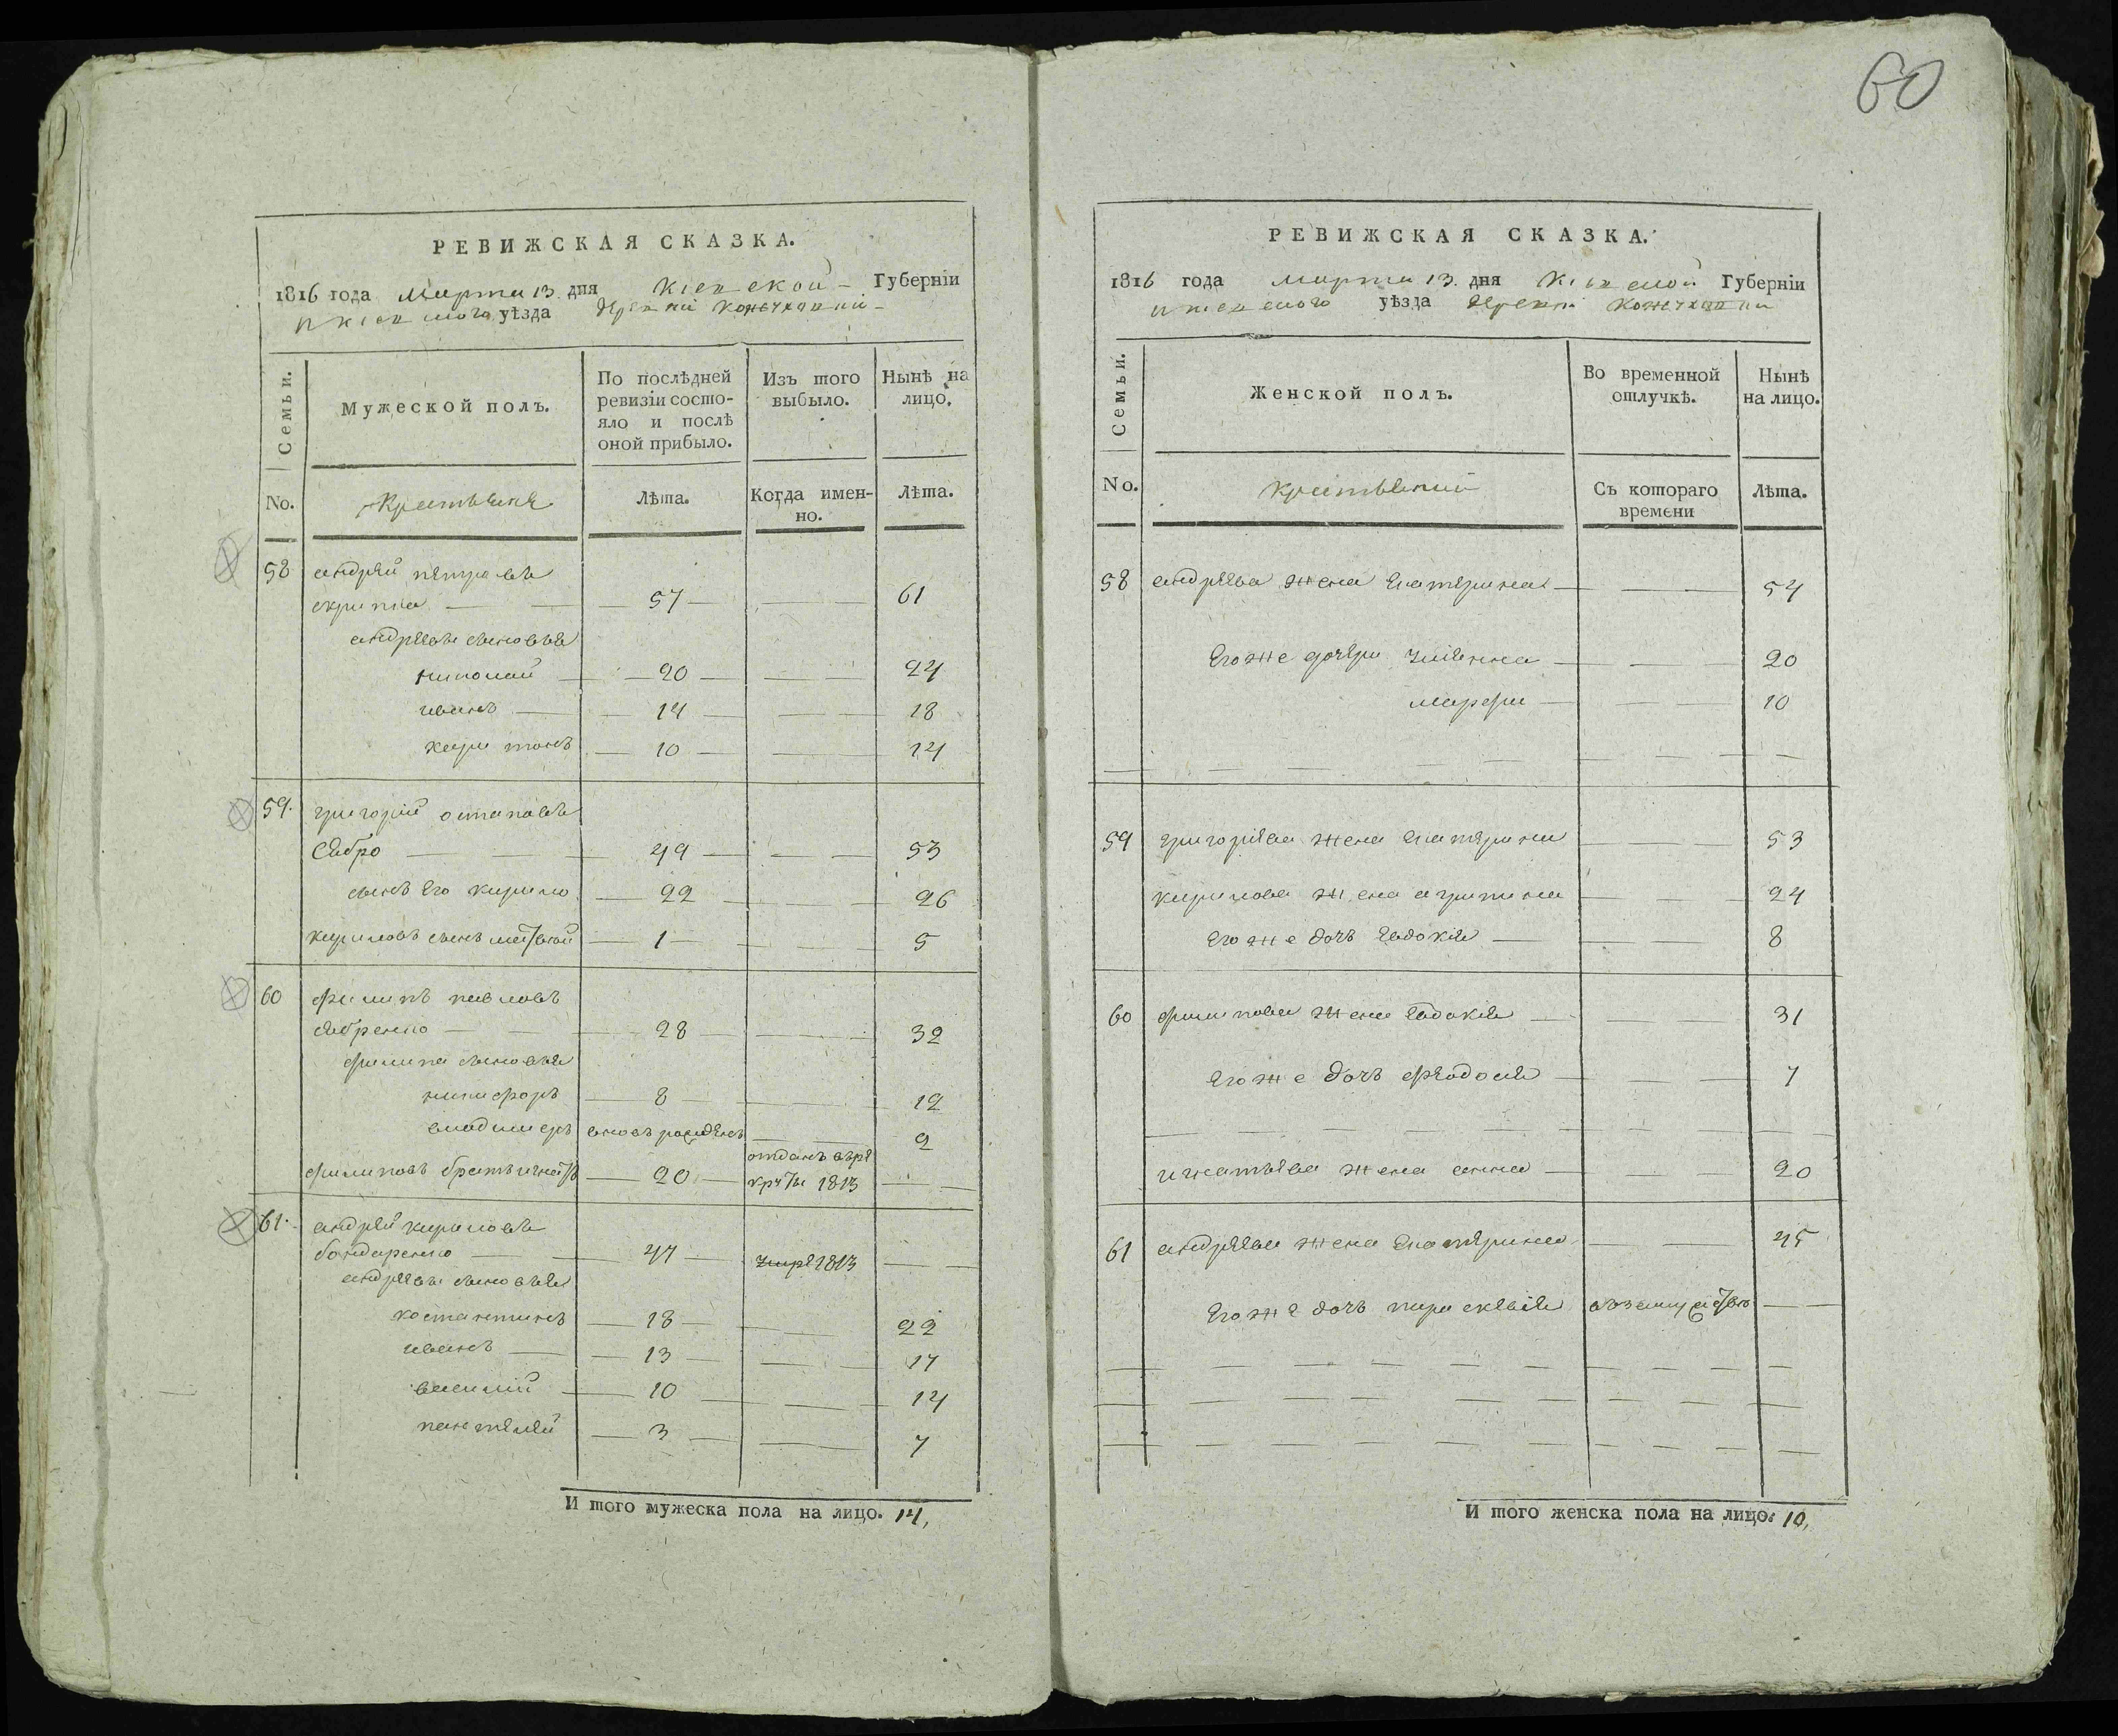 60
РЕВИЖСКАЯ СКАЗКА.
1816 года Марта 13 дня Кіевской Губерніи
и Кіевского уѣзда Деревни Кожухакки
Семьи. Мужеской полъ. По послѣдней ревизіи состояло и послѣ оной прибыло. Изъ того выбыло. Нынѣ на лицо.
No. Крестьяне Лѣта. Когда именно. Лѣта.
58 андрей петровъ
скрипка 57 61
андреевы сыновья
николай 20 24
иванъ 14 18
харитонъ 10 14
59. григорій остаповъ
Себро 49 53
сынъ Его кирило 22 26
кириловъ сынъ матвѣй 1 5
60 филипъ павловъ
себренко 28 32
филипа сыновья
никифоръ 8 12
владимеръ вновь рожденъ 2
филиповъ братъ игнатъ 20 отданъ въ рекруты 1813
61. андрей кириловъ
бондаренко 47 умре 1813
андреевы сыновья
костантинъ 18 22
иванъ 13 17
василій 10 14
пантелей 3 7
И того мужеска пола на лицо. 14,
РЕВИЖСКАЯ СКАЗКА.
1816 года марта 13. дня Кіевской Губерніи
уѣзда Деревни
Семьи. Женской полъ. Во временной отлучкѣ. Нынѣ на лицо.
No. Крестьянки Съ котораго времени Лѣта.
58 андреева жена Екатерина 54
Его же дочери улiянна 20
марфа 10
59 григоріева жена Екатерина 53
кирилова жена агрипина 24
Его же дочь Евдокія 8
60 филипова жена Евдокія 31
Его же дочь феодосія 7
игнатьева жена анна 20
61 андреева жена Екатерина 45
Его же дочь параскевія в замужествѣ
И того женска пола на лицо: 10,